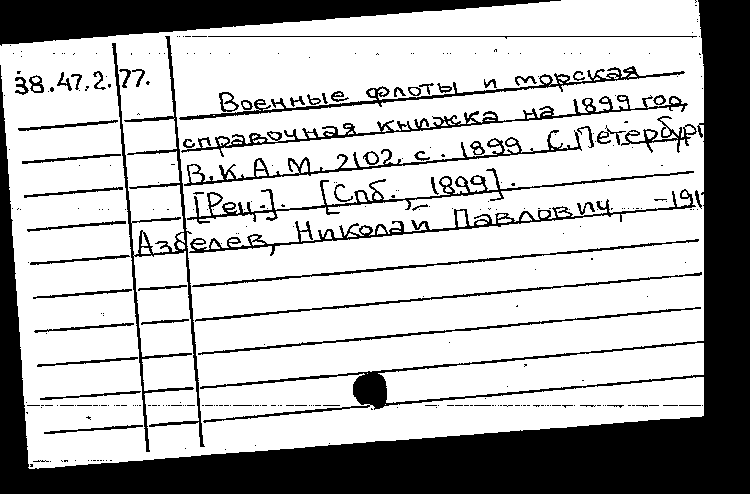 38.47.2.77.
Военные флоты и морская
справочная книжка на 1899 год,
В.К.А.М. 2102. с. 1899. С.Петербург
[Рец.]. [Спб., 1899].
Азбелев, Николай Павлович, -191